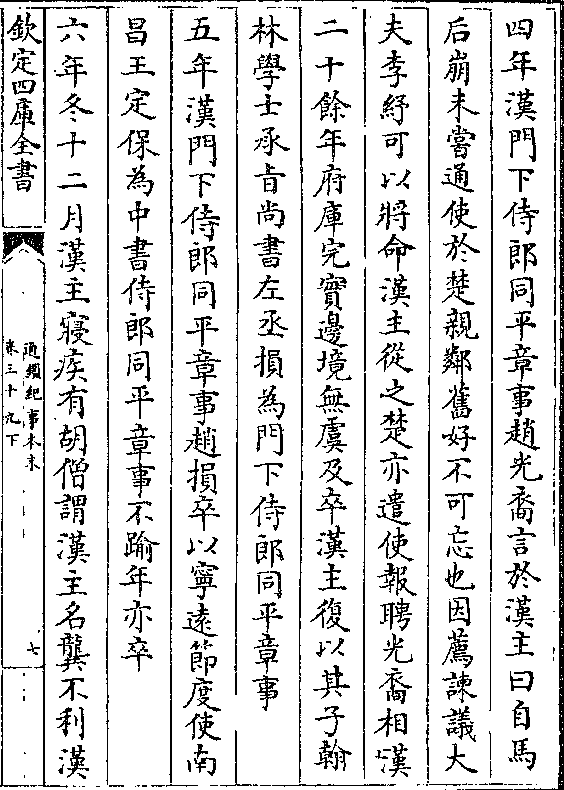 四年漢門下侍郎同平章事趙光裔言於漢主曰自馬
后崩未嘗通使於楚親鄰舊好不可忘也因薦諫議大
夫李紓可以將命漢主從之楚亦遣使報聘光裔相漢
二十餘年府庫完實邊境無虞及卒漢主復以其子翰
林學士承㫖尚書左丞損為門下侍郎同平章事
五年漢門下侍郎同平章事趙損卒以寧遠節度使南
昌王定保為中書侍郎同平章事不踰年亦卒
六年冬十二月漢主寢疾有胡僧謂漢主名龔不利漢
欽定四庫全書
通鑑紀事本末
卷三十九下
七